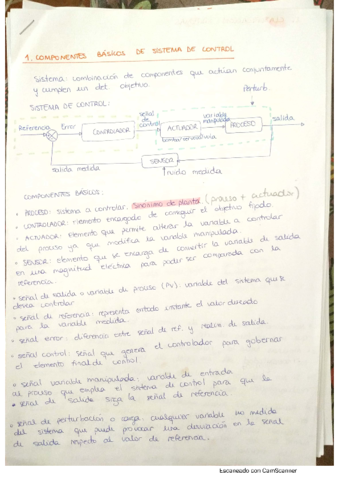 1. COMPONENTES BÁSICOS DE SISTEMA DE CONTROL
Sistema: combinación de componentes que actúan conjuntamente
y cumplen un det. objetivo.
SISTEMA DE CONTROL:
Perturb.
Referencia
Error
CONTROLADOR
señal de control
ACTUADOR
variable manipulada
PROCESO
salida
SENSOR
salida medida
ruido medida
COMPONENTES BÁSICOS:
• PROCESO: sistema a controlar. Sinónimo de planta (proceso + actuador)
• CONTROLADOR: elemento encargado de conseguir el objetivo fijado
• ACTUADOR: elemento que permite alterar la variable a controlar
del proceso ya que modifica la variable manipulada.
• SENSOR: elemento que se encarga de convertir la variable de salida
en una magnitud eléctrica para poder ser comparada con la
referencia
• señal de salida o variable de proceso (PV): variable del sistema que se
desea controlar
• señal de referencia: representa en todo instante el valor deseado
para la variable medida.
• señal error: diferencia entre señal de ref. y señal de salida.
• señal control: señal que genera el controlador para gobernar
el elemento final de control.
• señal variable manipulada: variable de entrada
al proceso que emplea el sistema de control para que la
• señal de salida siga la señal de referencia
• señal de perturbación o carga: cualquier variable no medida
del sistema que puede provocar una desviación en la señal
de salida respecto al valor de referencia.
Escaneado con CamScanner